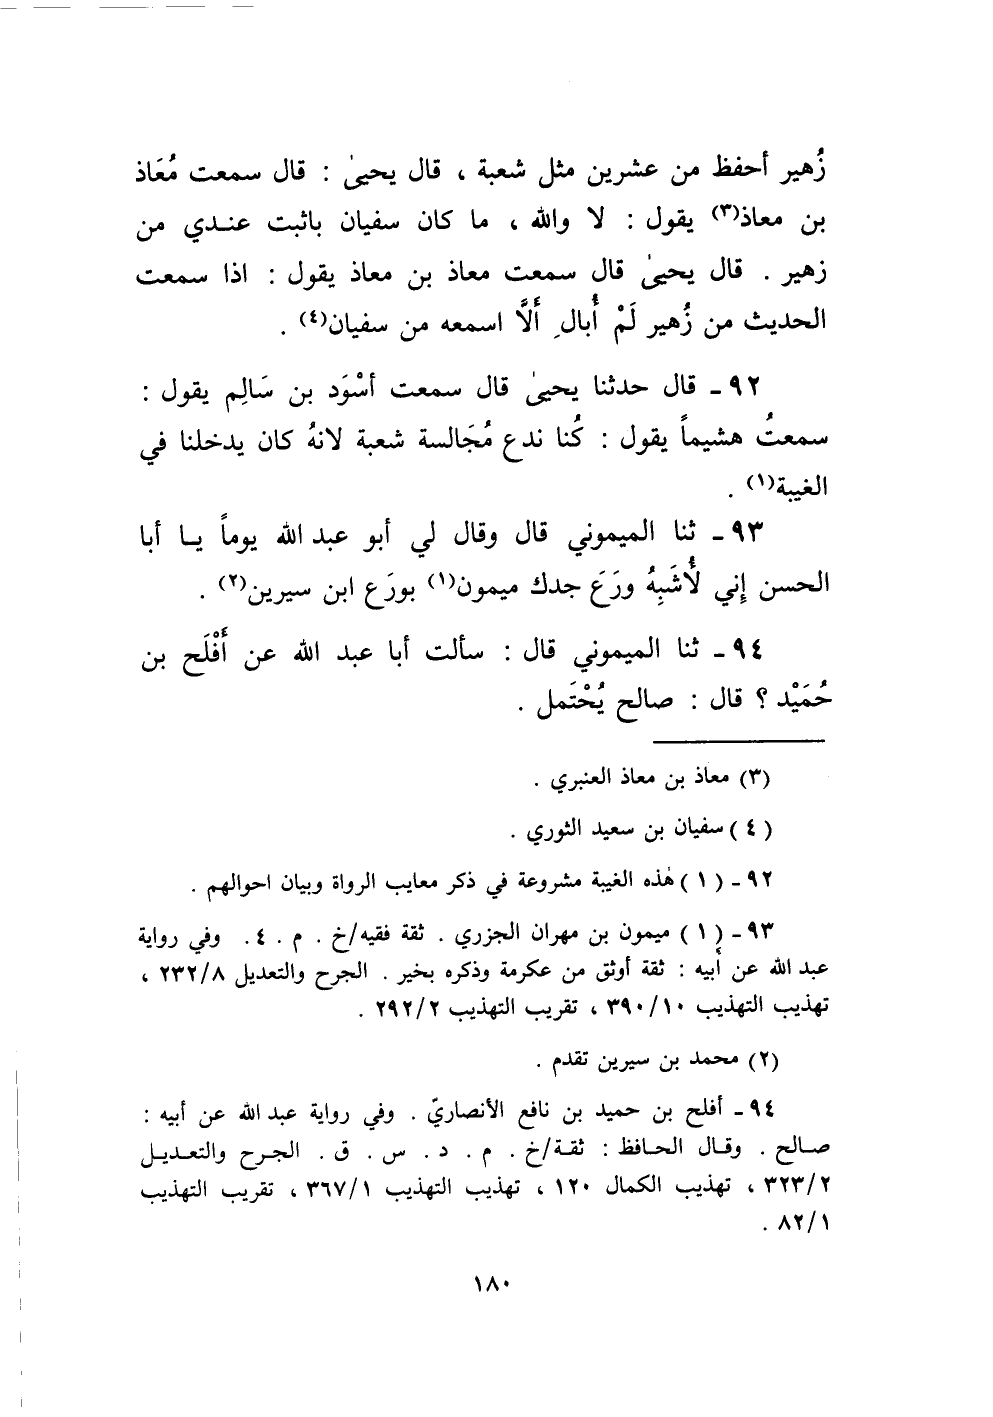 زُهير أحفظ من عشرين مثل شعبة ، قال يحيىٰ : قال سمعت مُعَاذ
بن معاذ(٣) يقول : لا والله ، ما كان سفيان باثبت عندي من
زهير . قال يحيىٰ قال سمعت معاذ بن معاذ يقول : اذا سمعت
الحديث من زُهير لَمْ أُبالِ أَلَّا اسمعه من سفيان(٤) .
٩٢ ـ قال حدثنا يحيىٰ قال سمعت أسْوَد بن سَالِم يقول :
سمعتُ هشيماً يقول : كُنا ندع مُجَالسة شعبة لانهُ كان يدخلنا في
الغيبة(١) .
٩٣ ـ ثنا الميموني قال وقال لي أبو عبد الله يوماً يا أبا
الحسن إني لأُشَبِهُ ورَعَ جدك ميمون(١) بورَع ابن سيرين(٢) .
٩٤ ـ ثنا الميموني قال : سألت أبا عبد الله عن أَفْلَح بن
حُمَيْد ؟ قال : صالح يُحْتَمل .
(٣) معاذ بن معاذ العنبري .
(٤) سفيان بن سعيد الثوري .
٩٢ ـ (١) هٰذه الغيبة مشروعة في ذكر معايب الرواة وبيان احوالهم .
٩٣ ـ (١) ميمون بن مهران الجزري . ثقة فقيه/خ . م . ٤ . وفي رواية
عبد الله عن أبيه : ثقة أوثق من عكرمة وذكره بخير . الجرح والتعديل ٢٣٢/٨ ،
تهذيب التهذيب ٣٩٠/١٠ ، تقريب التهذيب ٢٩٢/٢ .
(٢) محمد بن سيرين تقدم .
٩٤ ـ أفلح بن حميد بن نافع الأنصاريّ . وفي رواية عبد الله عن أبيه :
صالح . وقال الحافظ : ثقة/خ . م . د . س . ق . الجرح والتعديل
٣٢٣/٢ ، تهذيب الكمال ١٢٠ ، تهذيب التهذيب ٣٦٧/١ ، تقريب التهذيب
٨٢/١ .
١٨٠